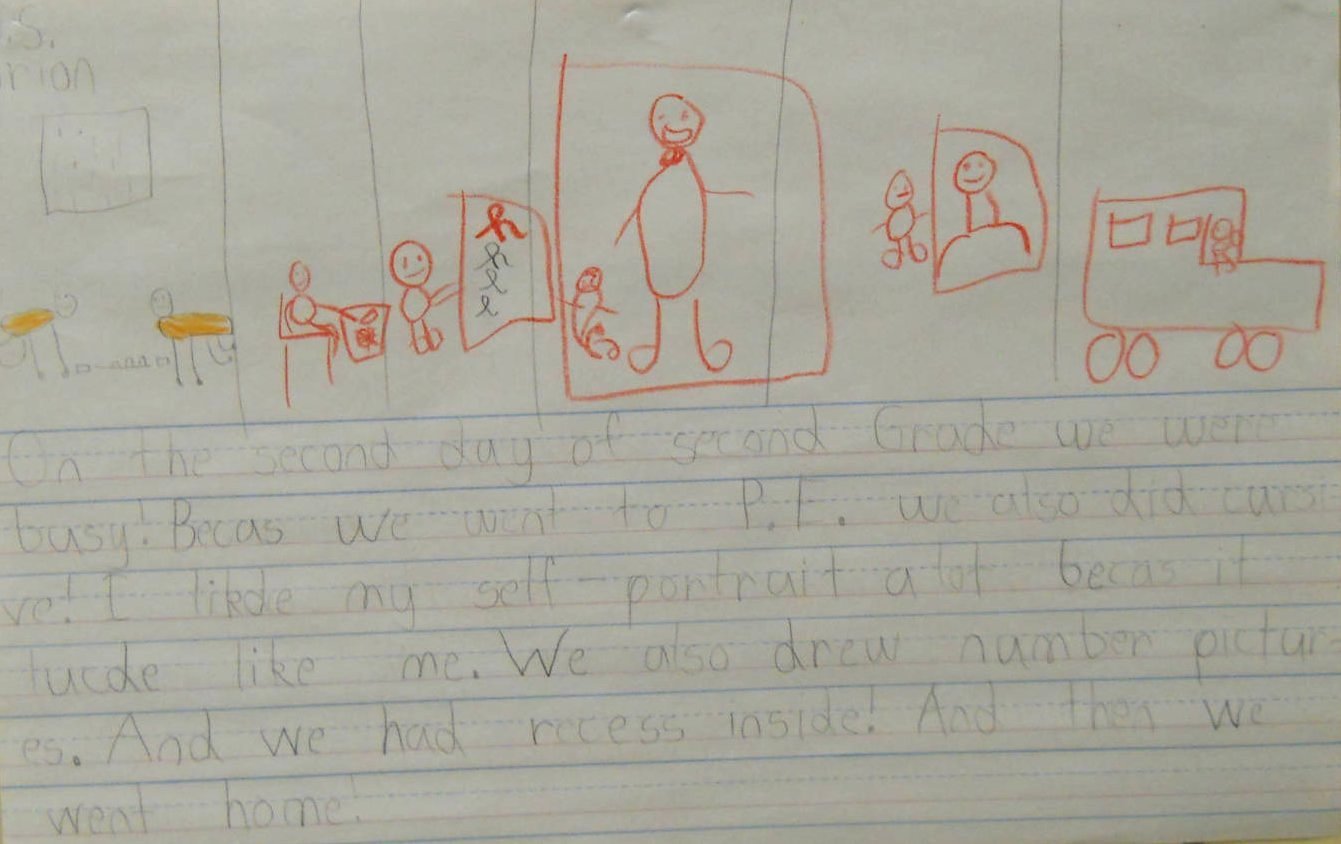 .S.
rion
On the second day of second Grade we were
busy! Becas we went to P.E. we also did cursi
ve! I likde my self-portrait a lot becas it
lucde like me. We also drew number pictur
es. And we had recess inside! And then we
went home!